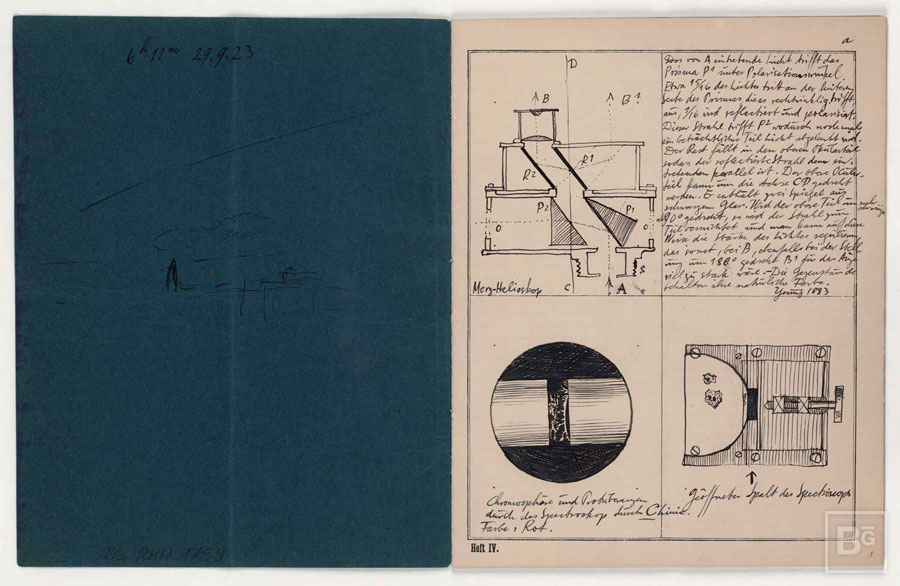 6h 11m 29.9.23
BG RHA 1759
a
D
B
B1
R1
R2
P2
P1
O
O
S
C
A
Merz-Helioskop
Das von A eintretende Licht trifft das
Prisma P1 unter Polarisationswinkel.
Etwa 15/16 des Lichtes tritt an der hinteren
Seite des Prismas dieses rechtwinklig trifft,
aus, 1/16 wird reflectiert und polarisiert.
Dieser Strahl trifft P2 wodurch nochmals
ein beträchtlicher Teil Licht abgelenkt wird.
Der Rest fällt in den oberen Okularteil
sodan der reflectierte Strahl dem ein-
tretenden parallel ist. Der obere Okular-
teil kann um die Achse CD gedreht
werden. Er enthält zwei Spiegel aus
schwarzem Glas. Wird der obere Teil um
90° gedreht, so wird der Strahl zum
Teil vernichtet und man kann auf diese
Weise die Stärke des Lichtes regulieren
das sonst, bei B, ebenfalls bei der Stell-
ung um 180° gedreht B1 für das Auge
viel zu stark wäre. - Die Gegenstände
behalten ihre natürliche Farbe.
Young 1883
Chromosphäre und Protuberanzen
durch das Spectroskop durch C Linie.
Farbe: Rot.
Geöffneter Spalt des Spectroscops
Heft IV.
BG